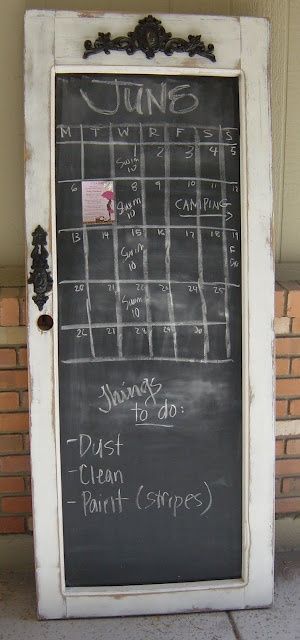 JUNE
M T W R F S S
1 2 3 4 5
Swim
10
6 8 9 10 11 12
Swim
10
CAMPING
13 14 15 16 17 18 19
Swim
10
20 21 22 23 24 25
Swim
10
26 27 28 29 30
Things
to do:
- Dust
- Clean
- Paint (stripes)